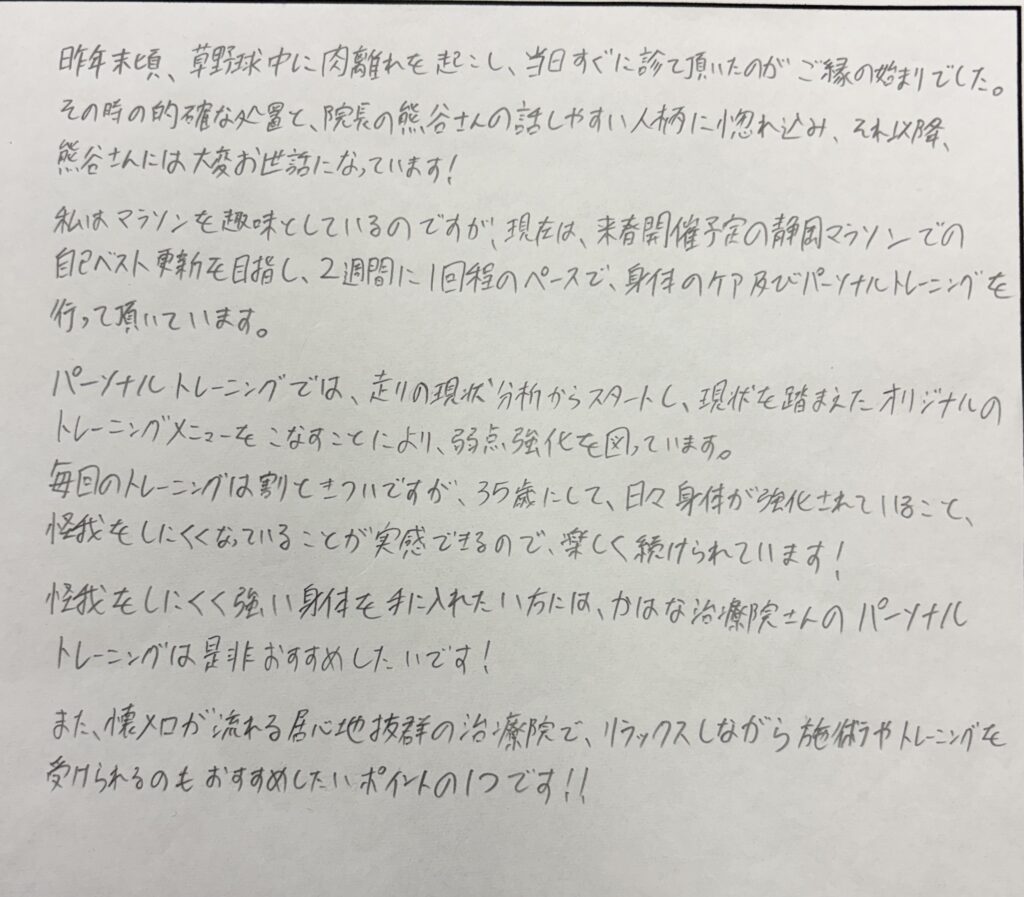 昨年末頃、草野球中に肉離れを起こし、当日すぐに診て頂いたのがご縁の始まりでした。
その時の的確な処置と、院長の熊谷さんの話しやすい人柄に惚れ込み、それ以降、
熊谷さんには大変お世話になっています!
私はマラソンを趣味としているのですが、現在は、来春開催予定の静岡マラソンでの
自己ベスト更新を目指し、2週間に1回程のペースで、身体のケア及びパーソナルトレーニングを
行って頂いています。
パーソナルトレーニングでは、走りの現状分析からスタートし、現状を踏まえたオリジナルの
トレーニングメニューをこなすことにより、弱点強化を図っています。
毎回のトレーニングは割ときついですが、35歳にして、日々身体が強化されていること、
怪我をしにくくなっていることが実感できるので、楽しく続けられています!
怪我をしにくく強い身体を手に入れたい方には、かはな治療院さんのパーソナル
トレーニングは是非おすすめしたいです!
また、懐メロが流れる居心地抜群の治療院で、リラックスしながら施術やトレーニングを
受けられるのもおすすめしたいポイントの1つです!!